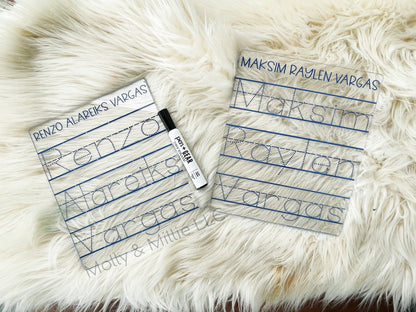 RENZO ALAREIKS VARGAS
Renzo
Alareiks
Vargas
MAKSIM RAYLEN VARGAS
Maksim
Raylen
Vargas
pen + GEAR
Molly & Millie Lue